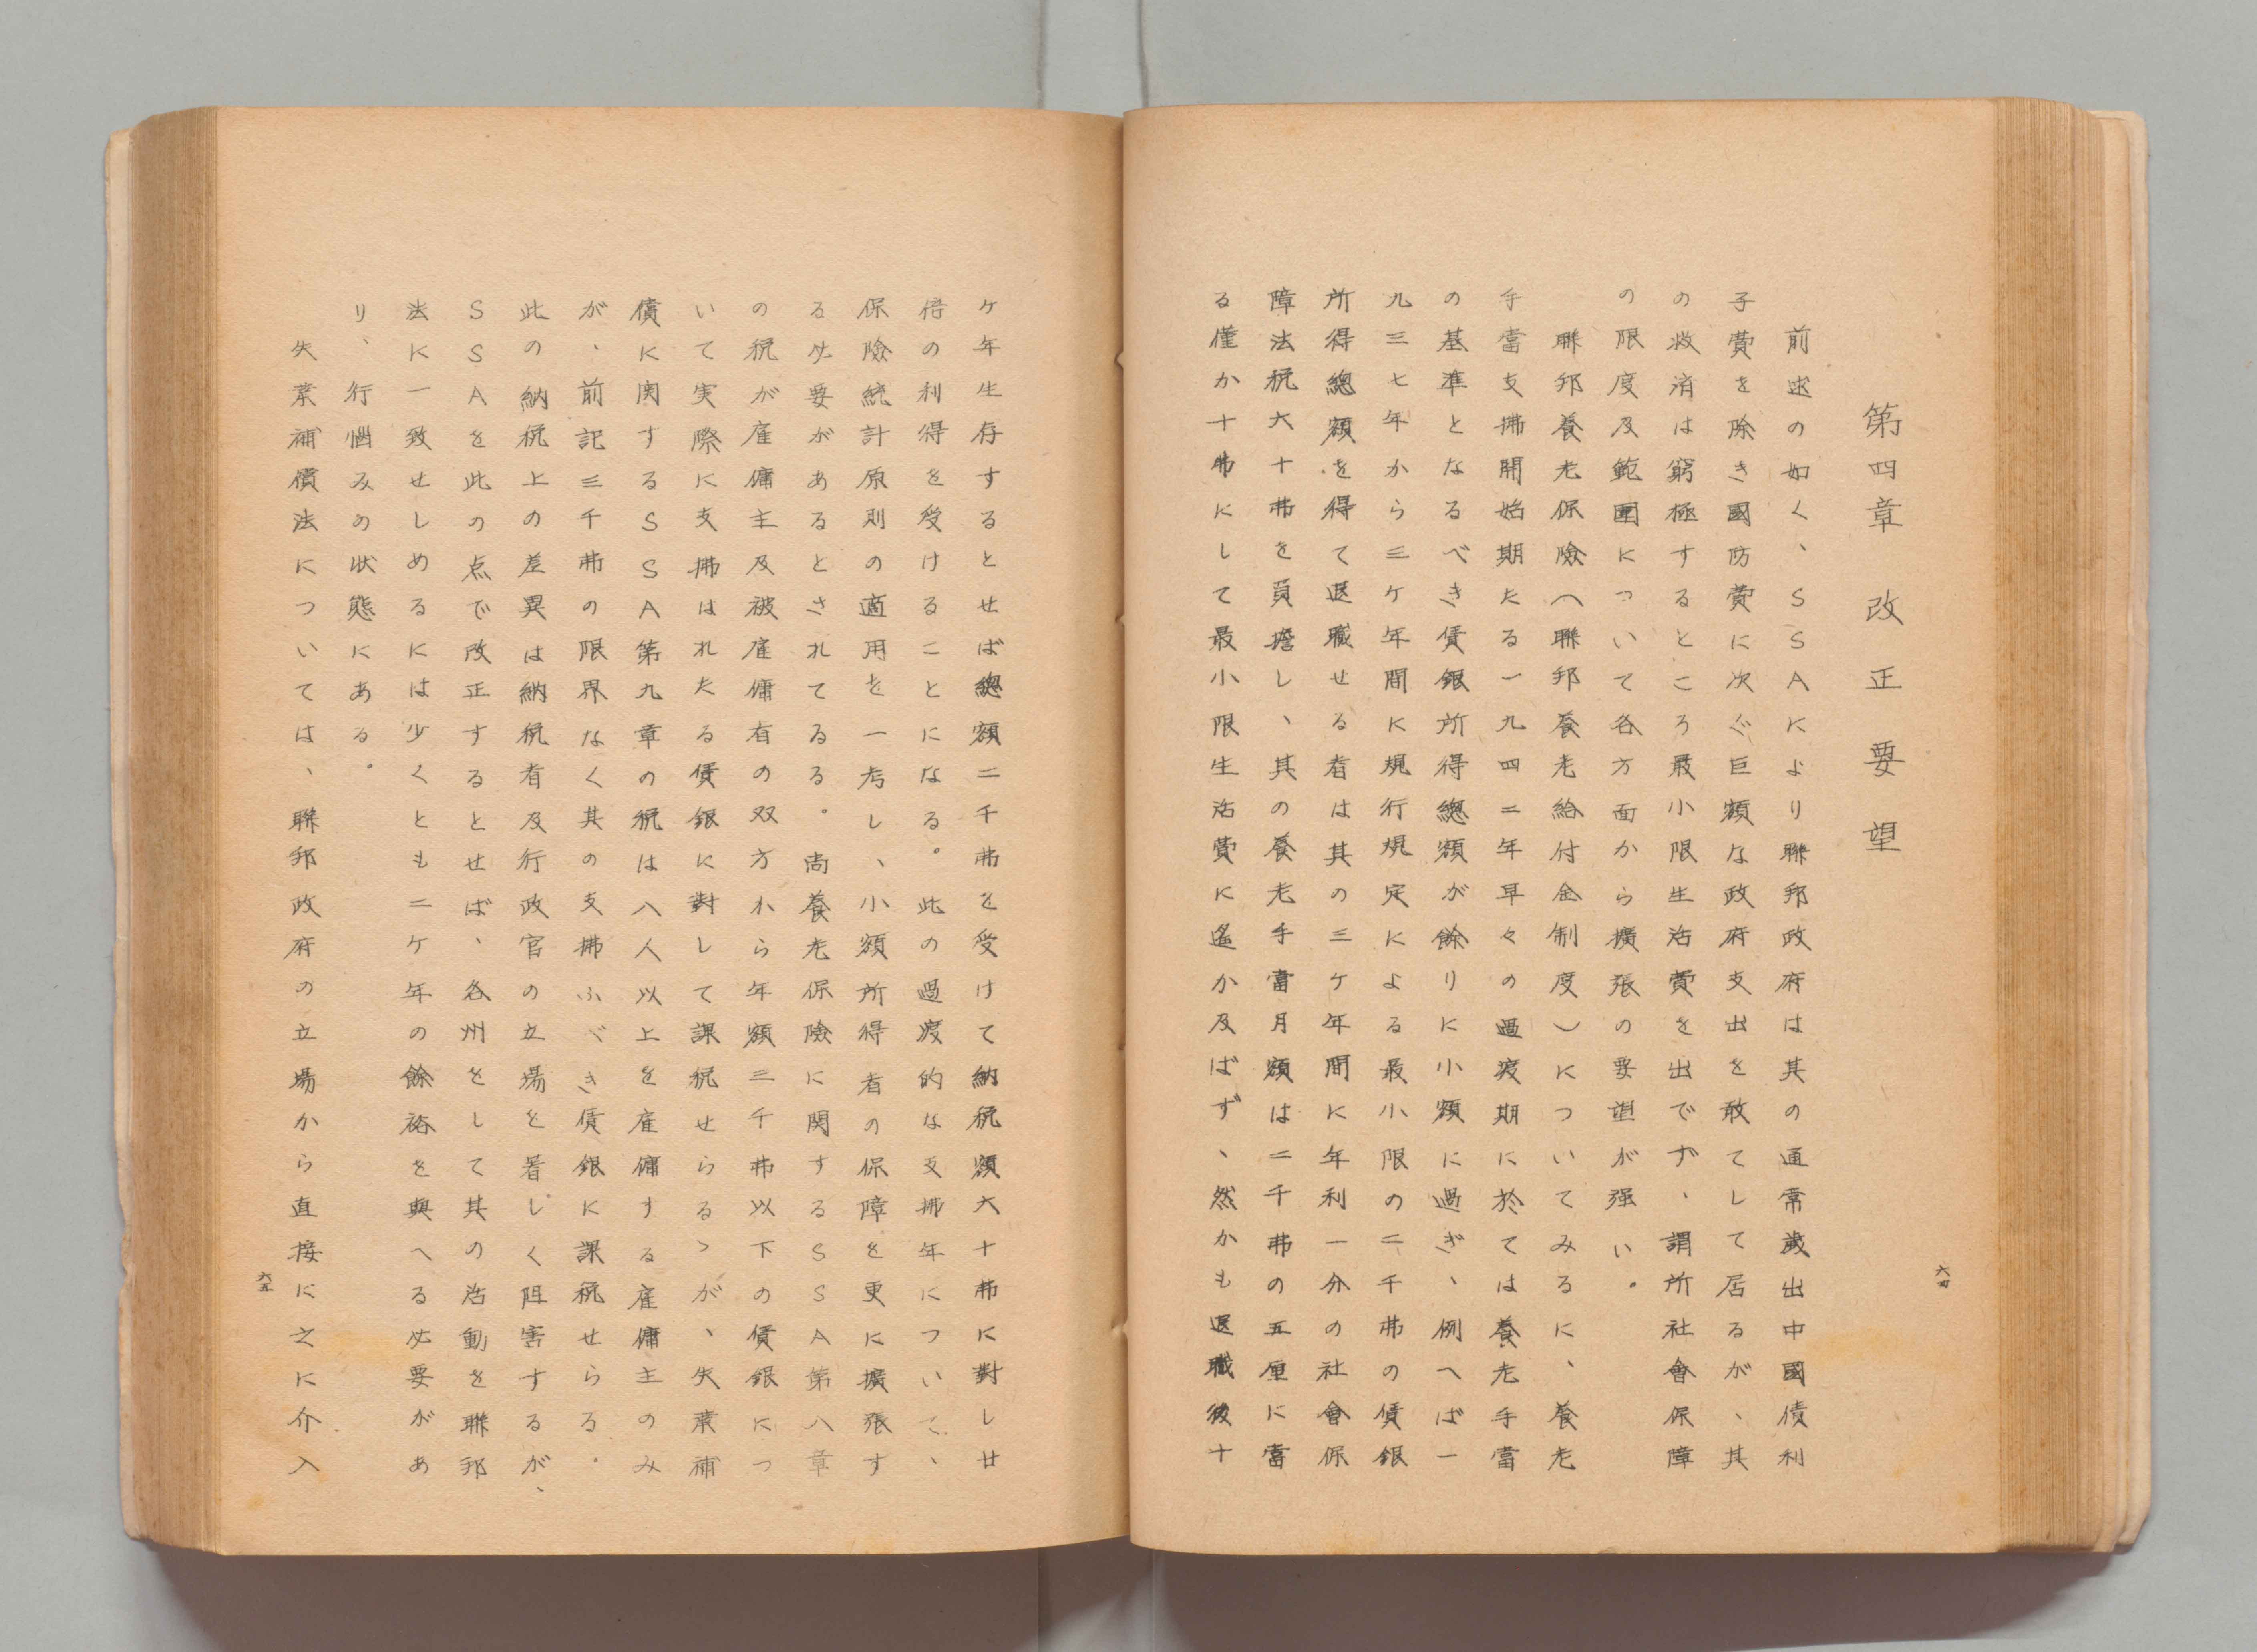 第四章　改正要望
前述の如く、ＳＳＡにより聯邦政府は其の通常歳出中國債利
子費を除き國防費に次ぐ巨額な政府支出を敢てして居るが、其
の救済は窮極するところ最小限生活費を出でず、謂所社會保障
の限度及範囲について各方面から擴張の要望が强い。
聯邦養老保險（聯邦養老給付金制度）についてみるに、養老
手當支拂開始期たる一九四二年早々の過渡期に於ては養老手當
の基準となるべき賃銀所得總額が餘りに小額に過ぎ、例へば一
九三七年から三ケ年間に規行規定による最小限の二千弗の賃銀
所得總額を得て退職せる者は其の三ケ年間に年利一分の社會保
障法税六十弗を負擔し、其の養老手當月額は二千弗の五厘に當
る僅か十弗にして最小限生活費に遙か及ばず、然かも退職後十
六四
ケ年生存するとせば總額二千弗を受けて納税額六十弗に對し廿
倍の利得を受けることになる。此の過渡的な支拂年について、
保險統計原則の適用を一考し、小額所得者の保障を更に擴張す
る必要があるとされてゐる。尚養老保險に関するＳＳＡ第八章
の税が雇傭主及被雇傭者の双方から年額三千弗以下の賃銀につ
いて実際に支拂はれたる賃銀に對して課税せらるゝが、失業補
償に関するＳＳＡ第九章の税は八人以上を雇傭する雇傭主のみ
が、前記三千弗の限界なく其の支拂ふべき賃銀に課税せらる。
此の納税上の差異は納税者及行政官の立場を著しく阻害するが、
ＳＳＡを此の点で改正するとせば、各州をして其の活動を聯邦
法に一致せしめるには少くとも二ケ年の餘裕を與へる必要があ
り、行惱みの状態にある。
失業補償法については、聯邦政府の立場から直接に之に介入
六五